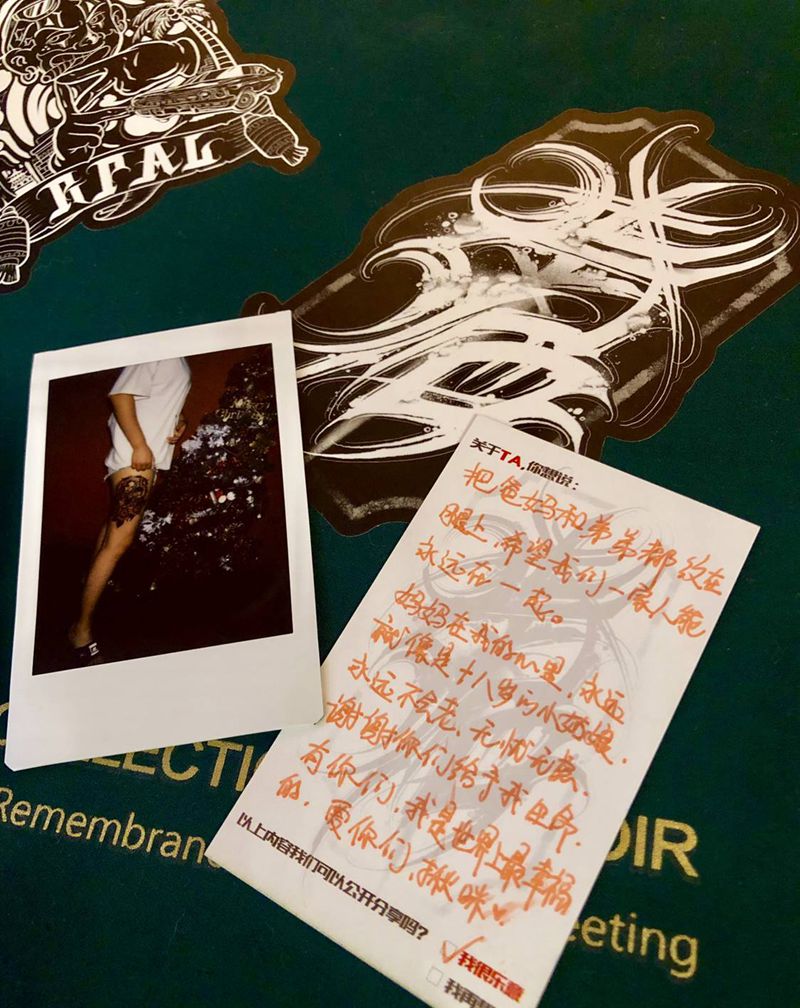 RPAL
关于TA,你想说:
把爸妈和弟弟都纹在
腿上,希望我们一家人能
永远在一起。
妈妈在我的心里,永远
就像是十八岁的小姑娘,
永远不会老、无忧无虑、
谢谢你们给予我生命,
有你们,我是世界上最幸福
的,爱你们,揪咪♥
以上内容我们可以公开分享吗?
我很乐意
我再
Remembran
OIR
eeting